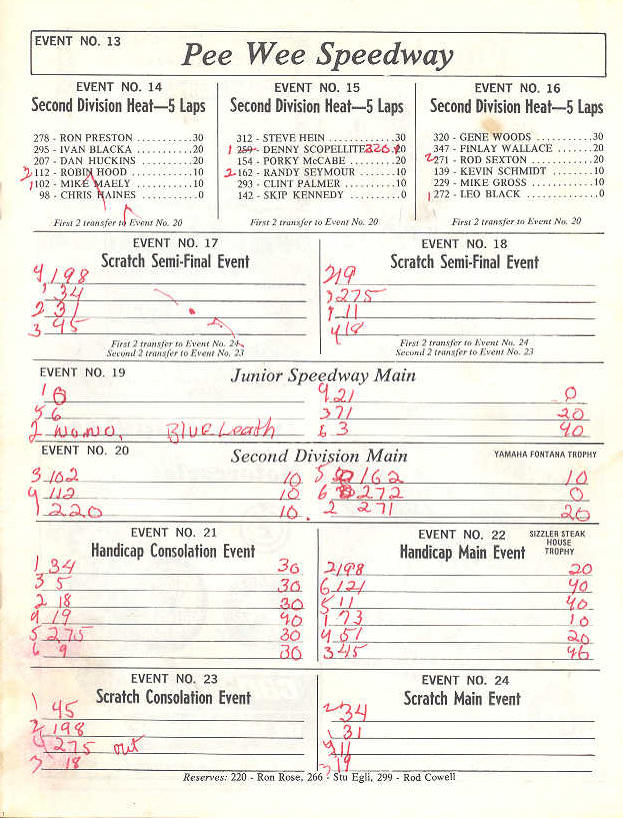 EVENT NO. 13
Pee Wee Speedway
EVENT NO. 14
Second Division Heat—5 Laps
278 - RON PRESTON ..........30
295 - IVAN BLACKA ..........20
207 - DAN HUCKINS ..........20
2 112 - ROBIN HOOD ..........10
1 102 - MIKE MAELY ..........10
98 - CHRIS HAINES ..........0
First 2 transfer to Event No. 20
EVENT NO. 15
Second Division Heat—5 Laps
312 - STEVE HEIN ..........30
1 259 - DENNY SCOPELLITE 220 20
154 - PORKY McCABE ..........20
2 162 - RANDY SEYMOUR ..........10
293 - CLINT PALMER ..........10
142 - SKIP KENNEDY ..........0
First 2 transfer to Event No. 20
EVENT NO. 16
Second Division Heat—5 Laps
320 - GENE WOODS ..........30
347 - FINLAY WALLACE ..........20
2 271 - ROD SEXTON ..........20
139 - KEVIN SCHMIDT ..........10
229 - MIKE GROSS ..........10
1 272 - LEO BLACK ..........0
First 2 transfer to Event No. 20
EVENT NO. 17
Scratch Semi-Final Event
4 198
1 34
2 31
3 45
First 2 transfer to Event No. 24
Second 2 transfer to Event No. 23
EVENT NO. 18
Scratch Semi-Final Event
2 19
3 275
1 11
4 18
First 2 transfer to Event No. 24
Second 2 transfer to Event No. 23
EVENT NO. 19
Junior Speedway Main
1 8
5 6
2 NoNo, Blue Leath
4 21 0
3 71 20
6 3 40
EVENT NO. 20
Second Division Main
YAMAHA FONTANA TROPHY
3 102 10
4 112 10
1 220 10.
5 162 10
6 272 0
2 271 20
EVENT NO. 21
Handicap Consolation Event
1 34 30
3 5 30
2 18 30
4 19 40
5 275 30
6 9 30
EVENT NO. 22
Handicap Main Event
SIZZLER STEAK
HOUSE
TROPHY
2 198 20
6 121 40
5 11 40
1 73 10
4 51 20
3 45 46
EVENT NO. 23
Scratch Consolation Event
1 45
2 198
4 275 out
3 18
EVENT NO. 24
Scratch Main Event
2 34
1 31
4 11
3 19
Reserves: 220 - Ron Rose, 266 - Stu Egli, 299 - Rod Cowell